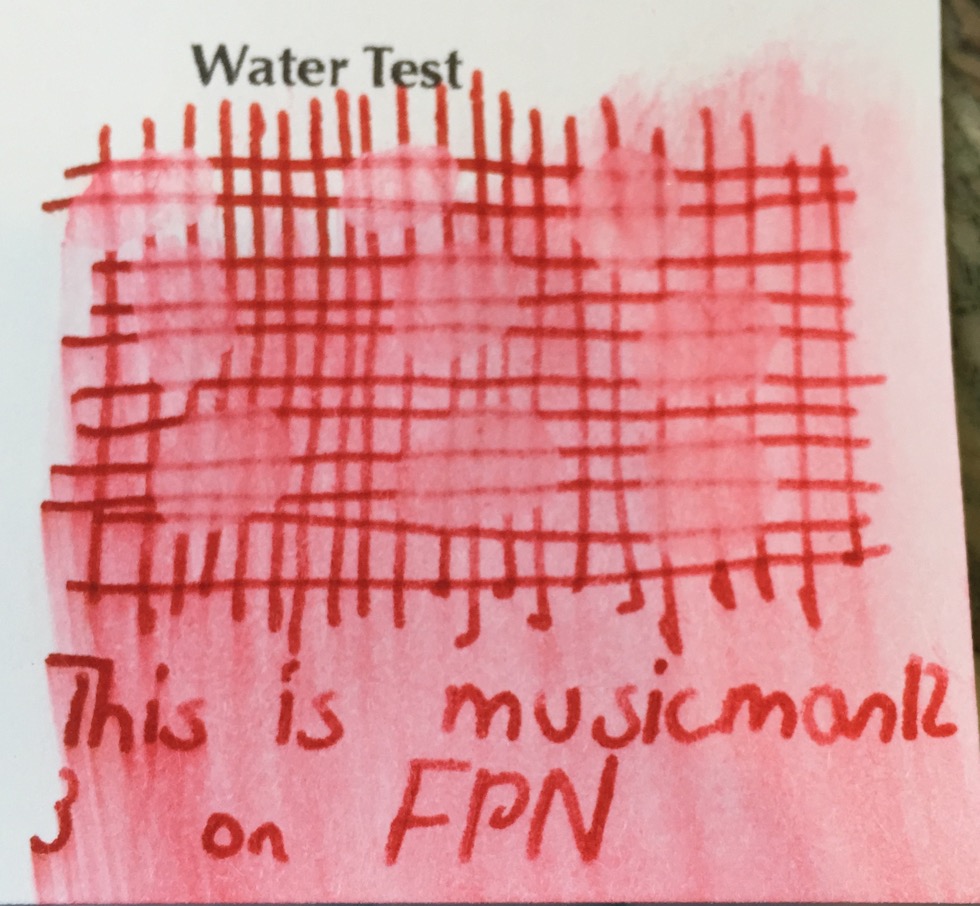 Water Test
This is musicman12
3 on FPN